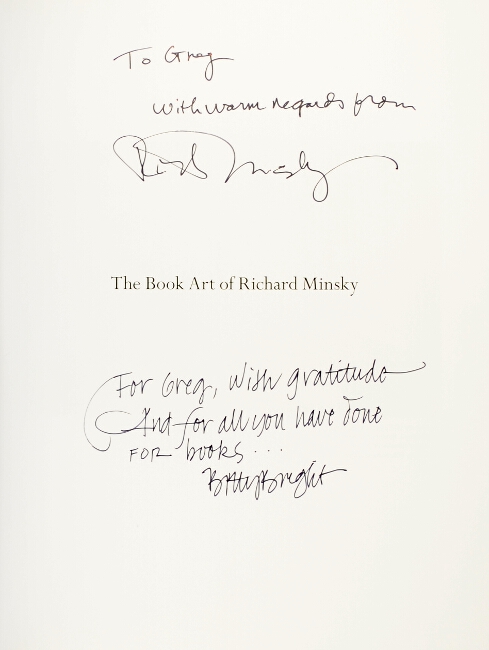 To Greg
with warm regards from
Rich Minsky
The Book Art of Richard Minsky
For Greg, with gratitude
And for all you have done
FOR books...
Betty Bright